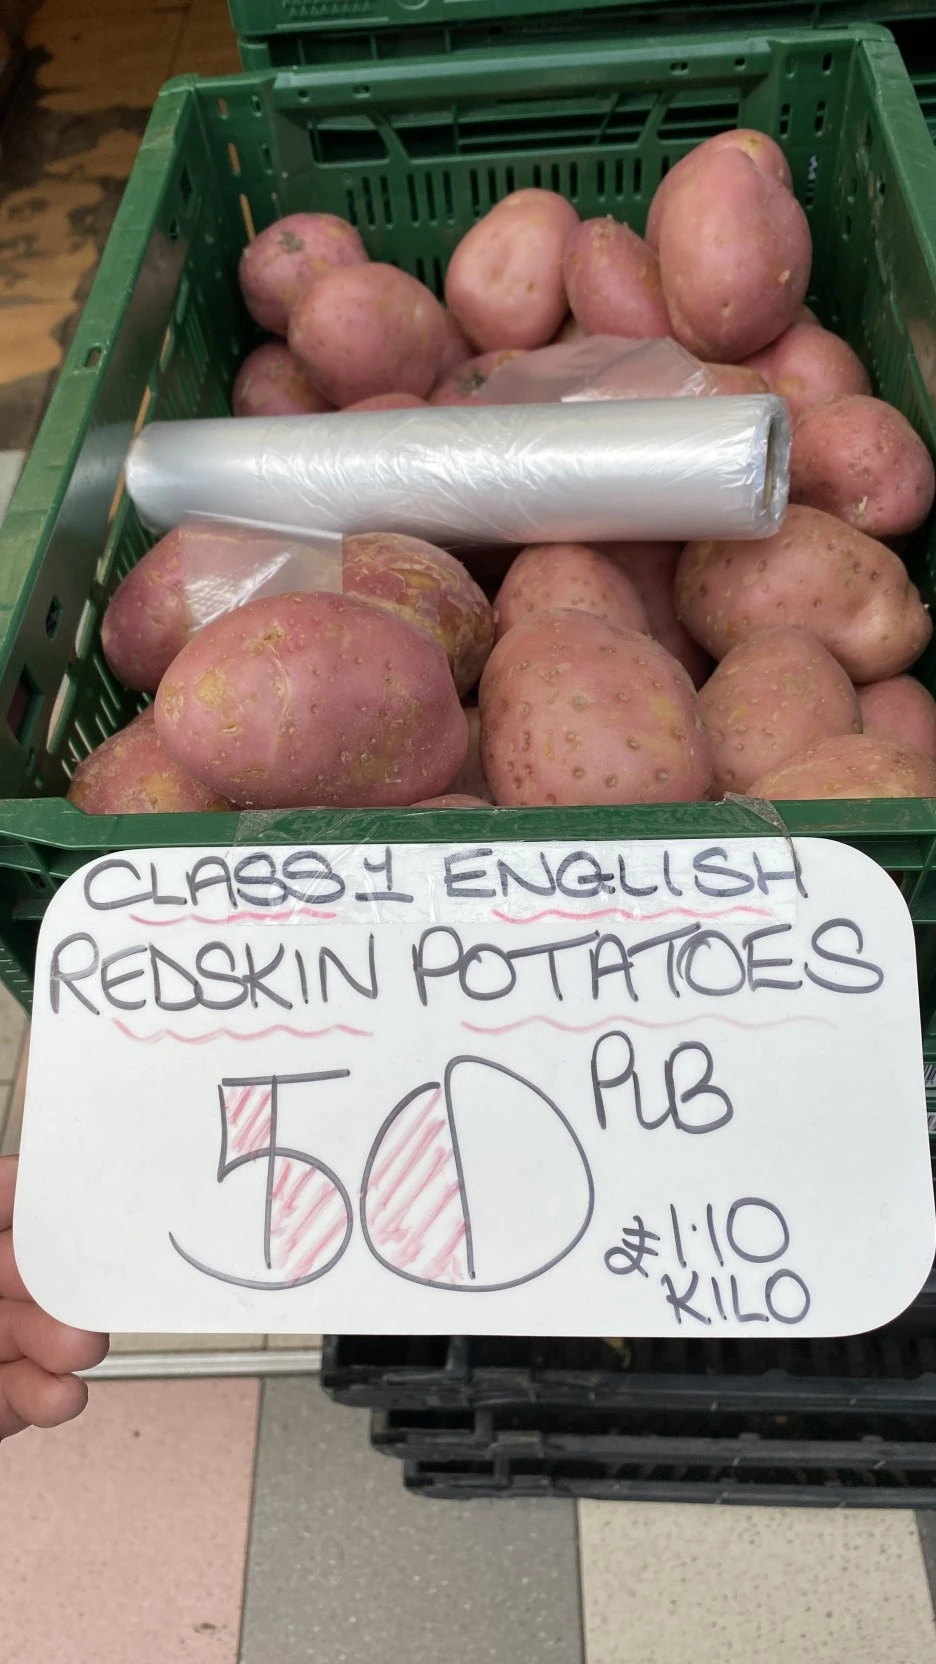 CLASS 1 ENGLISH
REDSKIN POTATOES
50 PLB
£1.10
KILO